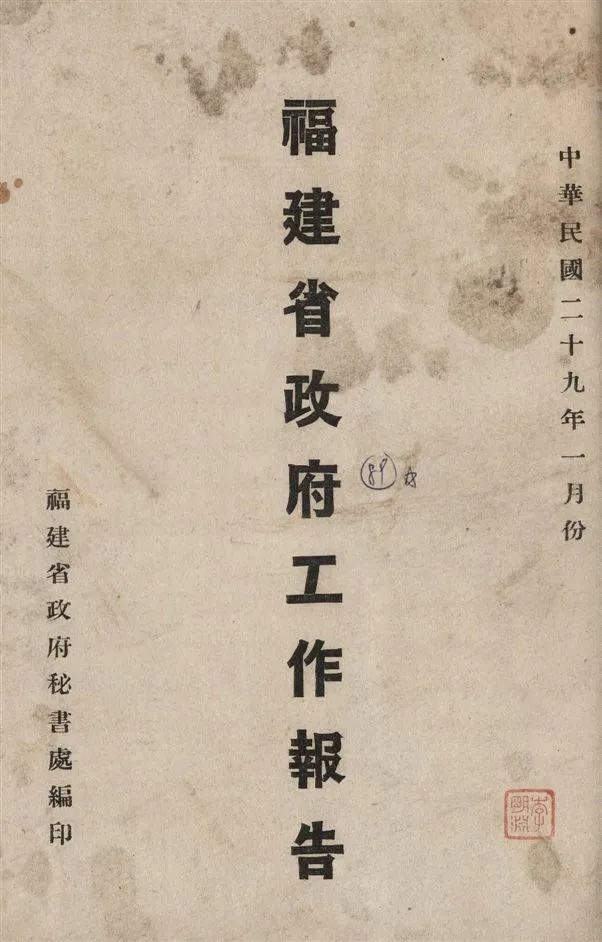 中華民國二十九年一月份
福建省政府工作報告
89
福建省政府秘書處編印